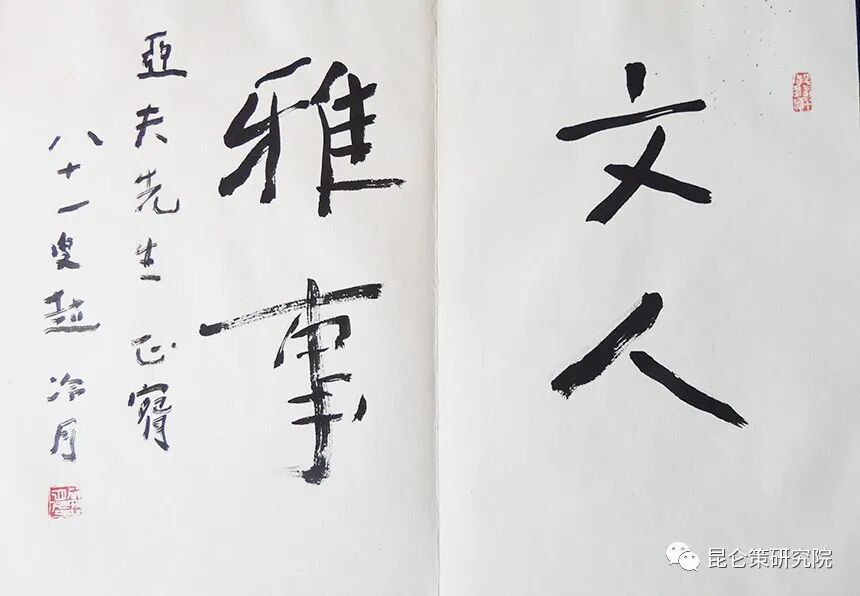 文人
雅事
亞夫先生正
八十一叟趙冷月
昆仑策研究院